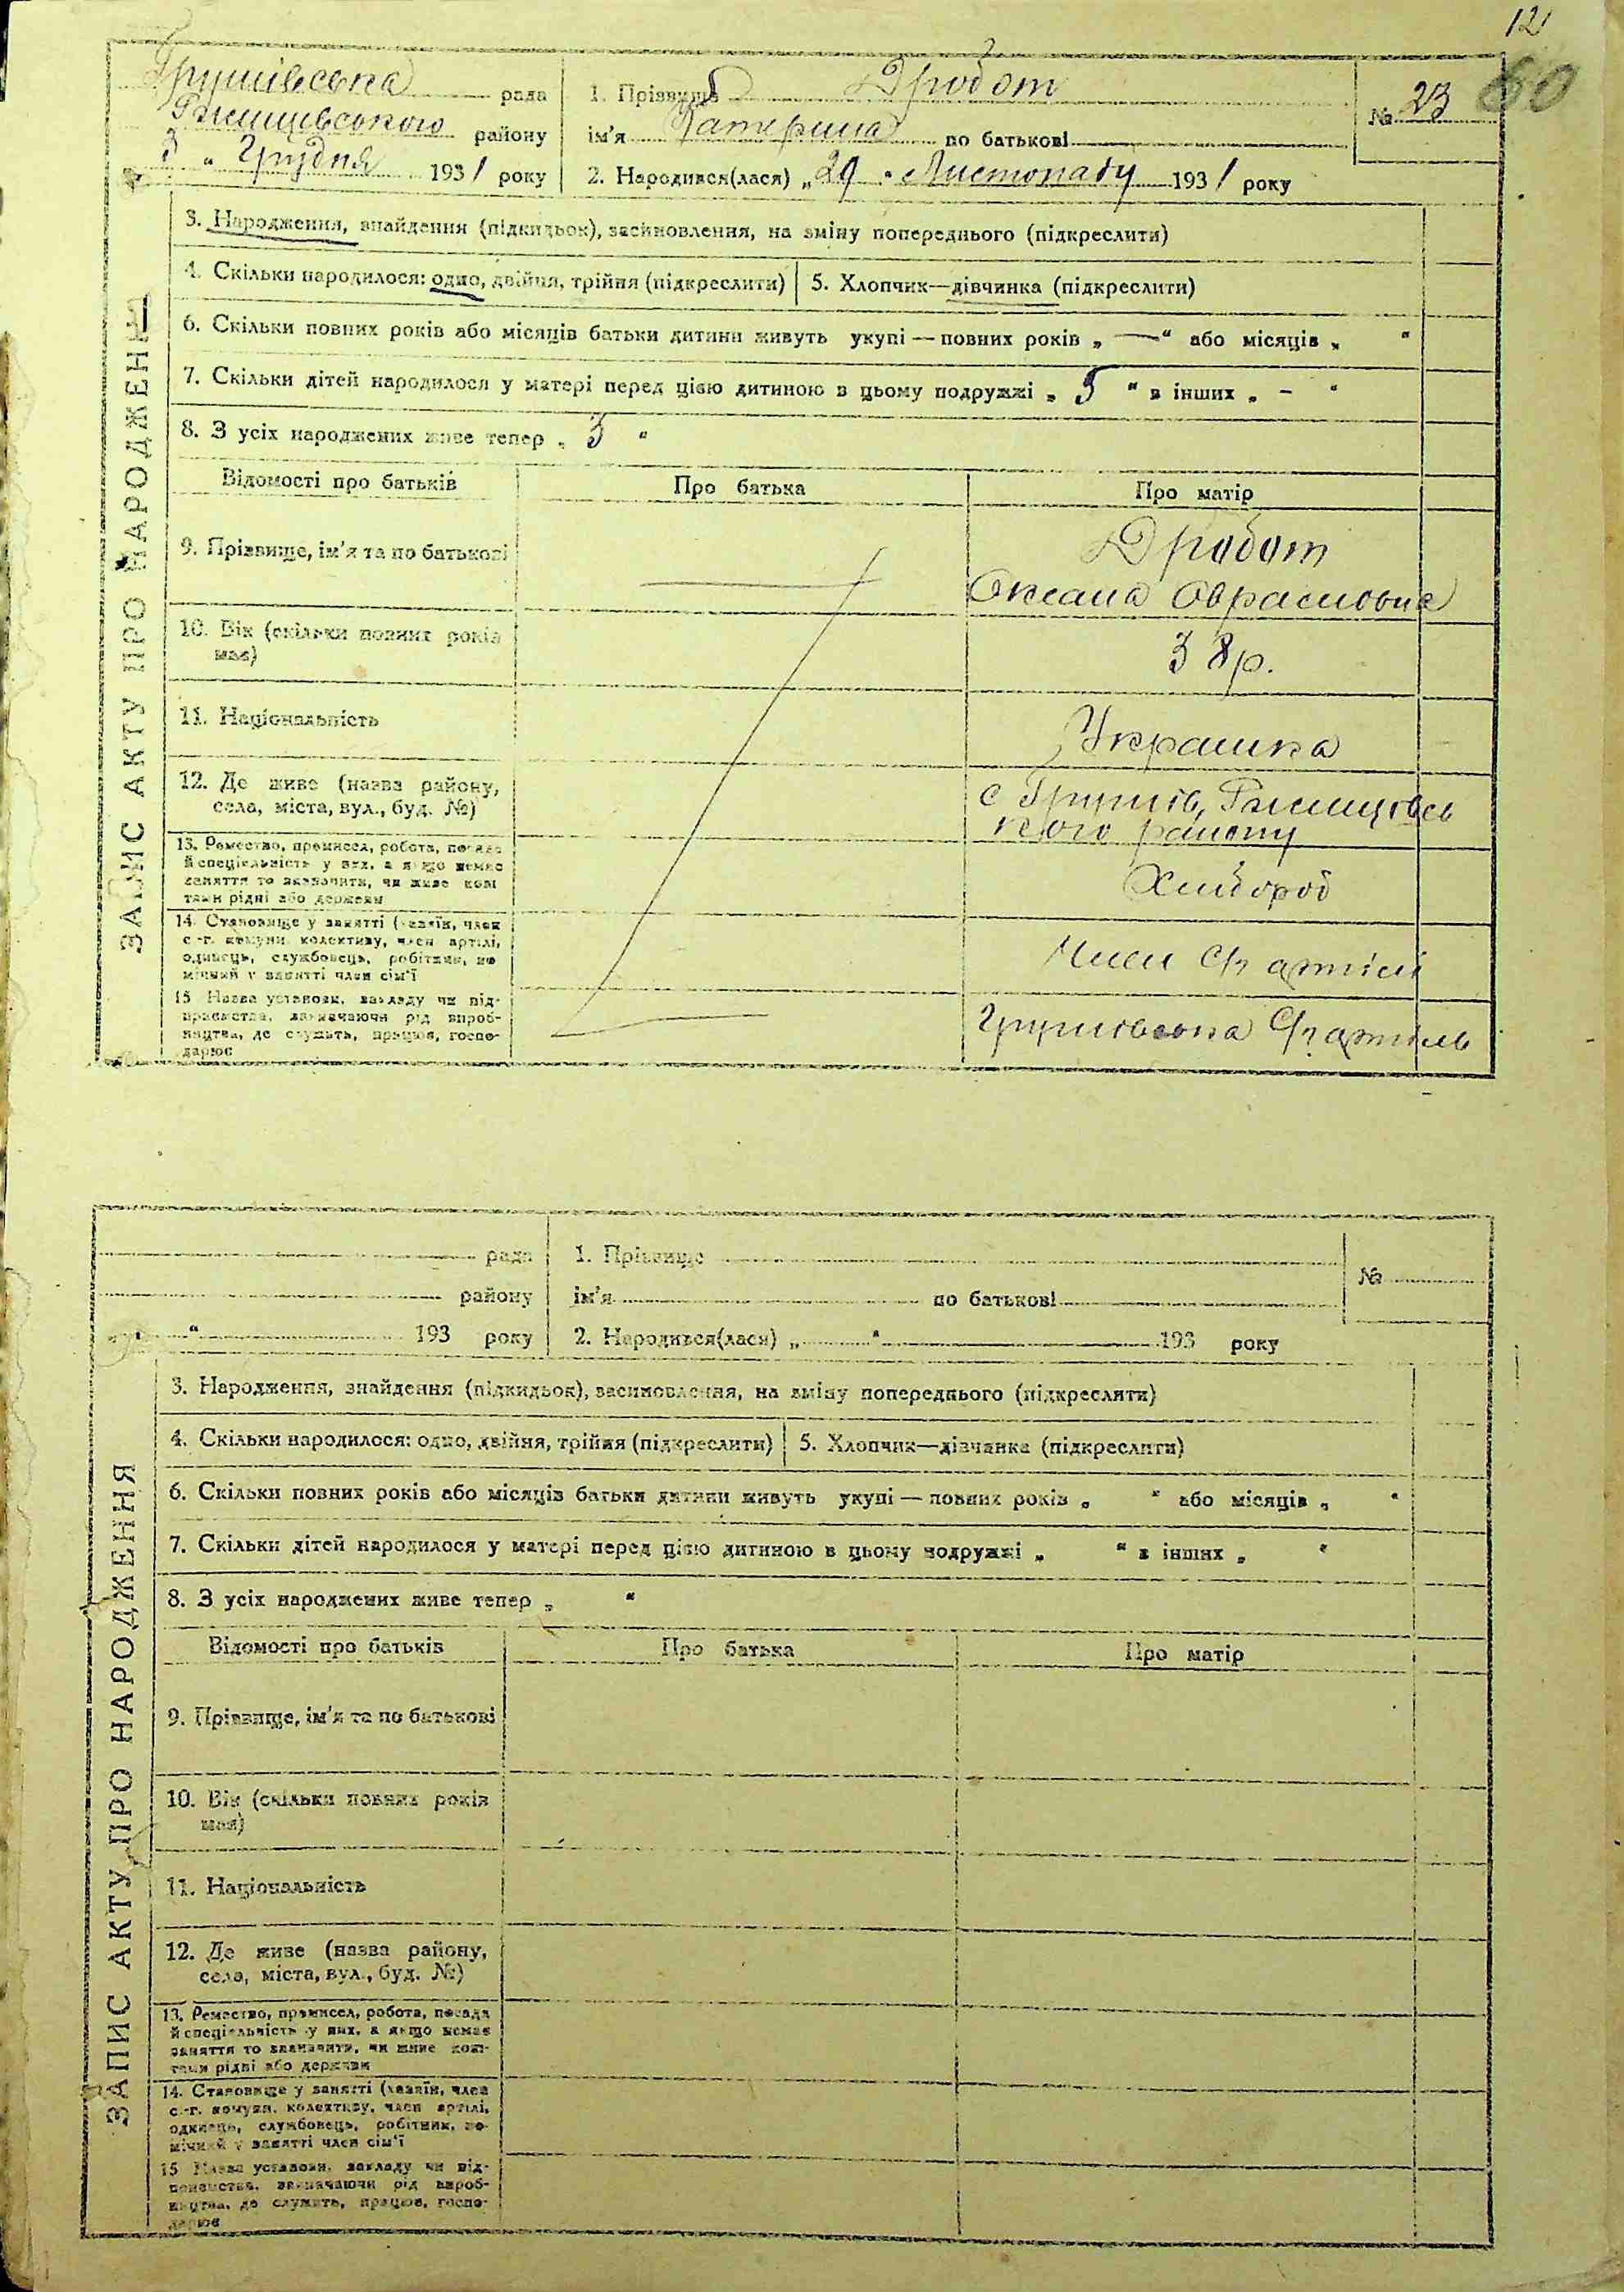 12
60
Грушівська рада
Ржищівського району
3 " Грудня 1931 року
1. Прізвище Дробот
ім'я Катерина по батькові
2. Народився(лася) „29 " Листопаду 1931 року
№ 23
ЗАПИС АКТУ ПРО НАРОДЖЕННЯ
3. Народження, знайдення (підкидьок), засиновлення, на зміну попереднього (підкреслити)
4. Скільки народилося: одно, двійня, трійня (підкреслити) 5. Хлопчик—дівчинка (підкреслити)
6. Скільки повних років або місяців батьки дитини живуть укупі — повних років „ — “ або місяців „ “
7. Скільки дітей народилося у матері перед цією дитиною в цьому подружжі „ 5 “ в інших „ - “
8. З усіх народжених живе тепер „ 3 “
Відомості про батьків Про батька Про матір
9. Прізвище, ім'я та по батькові
Дробот
Оксана Оврамовна
10. Вік (скільки повних років
має)
38р.
11. Національність
Українка
12. Де живе (назва району,
села, міста, вул., буд. №)
с Грушів, Ржищівсь
кого району
13. Ремество, промисел, робота, посада
й спеціяльність у них, а якщо немає
заняття то зазначити, чи живе кош-
тами рідні або держави
Хлібороб
14. Становище у занятті (хазяїн, член
с.-г. комуни, колективу, член артілі,
одинець, службовець, робітник, по-
мічний у занятті член сім'ї
Член С/г артілі
15 Назва установи, закладу чи під-
приємства, зазначаючи рід вироб-
ництва, де служить, працює, госпо-
дарює
Грушівська С/г артіль
рада
району
" 193 року
1. Прізвище
ім'я по батькові
2. Народився(лася) „ “ 193 року
№
ЗАПИС АКТУ ПРО НАРОДЖЕННЯ
3. Народження, знайдення (підкидьок), засиновлення, на зміну попереднього (підкреслити)
4. Скільки народилося: одно, двійня, трійня (підкреслити) 5. Хлопчик—дівчинка (підкреслити)
6. Скільки повних років або місяців батьки дитини живуть укупі — повних років „ “ або місяців „ “
7. Скільки дітей народилося у матері перед цією дитиною в цьому подружжі „ “ в інших „ “
8. З усіх народжених живе тепер „ “
Відомості про батьків Про батька Про матір
9. Прізвище, ім'я та по батькові
10. Вік (скільки повних років
має)
11. Національність
12. Де живе (назва району,
села, міста, вул., буд. №)
13. Ремество, промисел, робота, посада
й спеціяльність у них, а якщо немає
заняття то зазначити, чи живе кош-
тами рідні або держави
14. Становище у занятті (хазяїн, член
с.-г. комуни, колективу, член артілі,
одинець, службовець, робітник, по-
мічний у занятті член сім'ї
15 Назва установи, закладу чи під-
приємства, зазначаючи рід вироб-
ництва, де служить, працює, госпо-
дарює